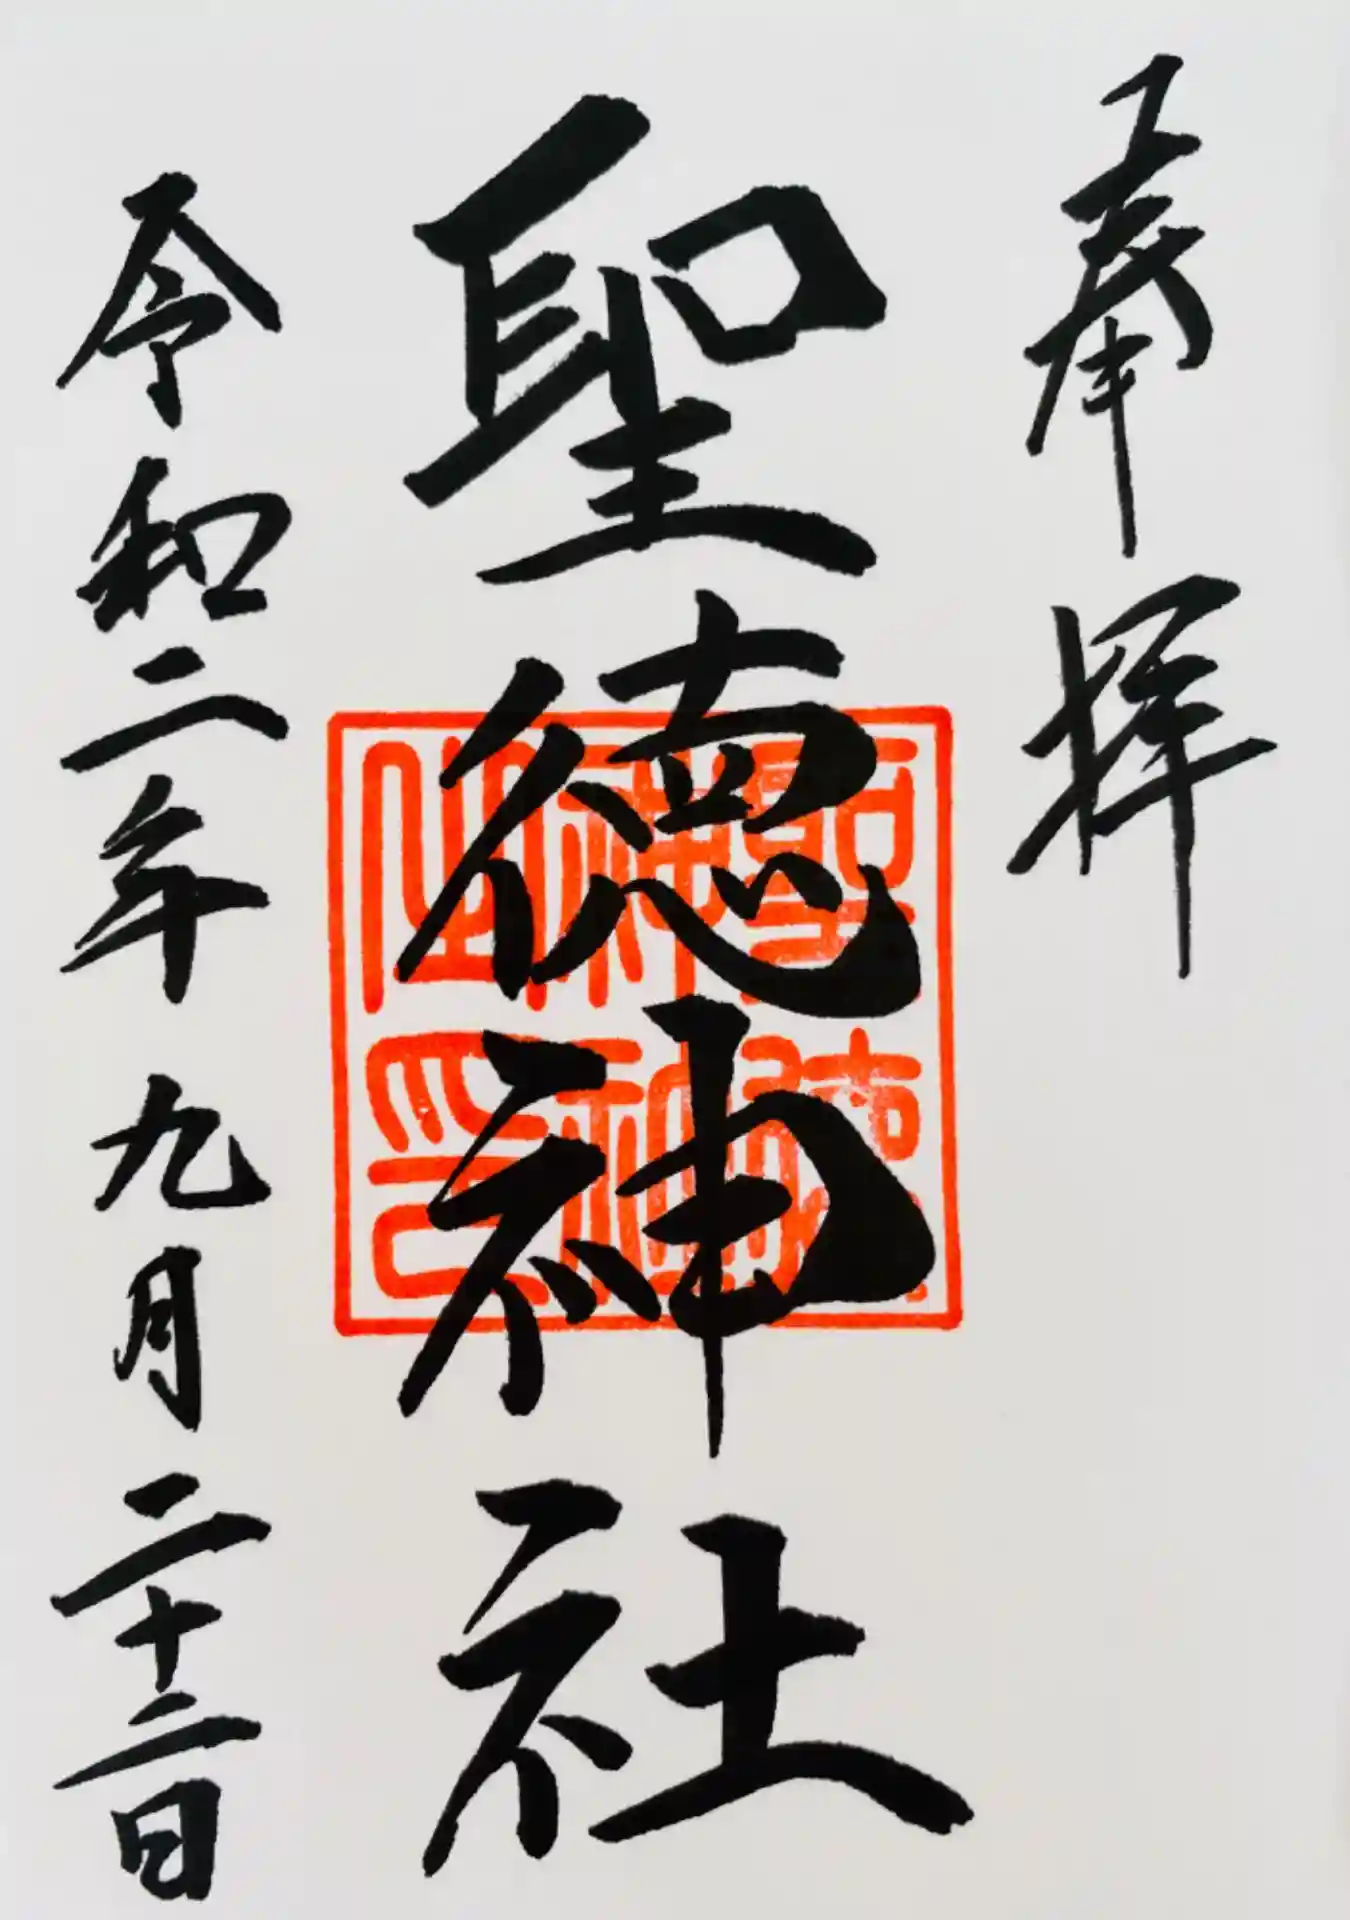 奉拝
聖徳神社
聖徳神社之印
令和二年九月二十二日